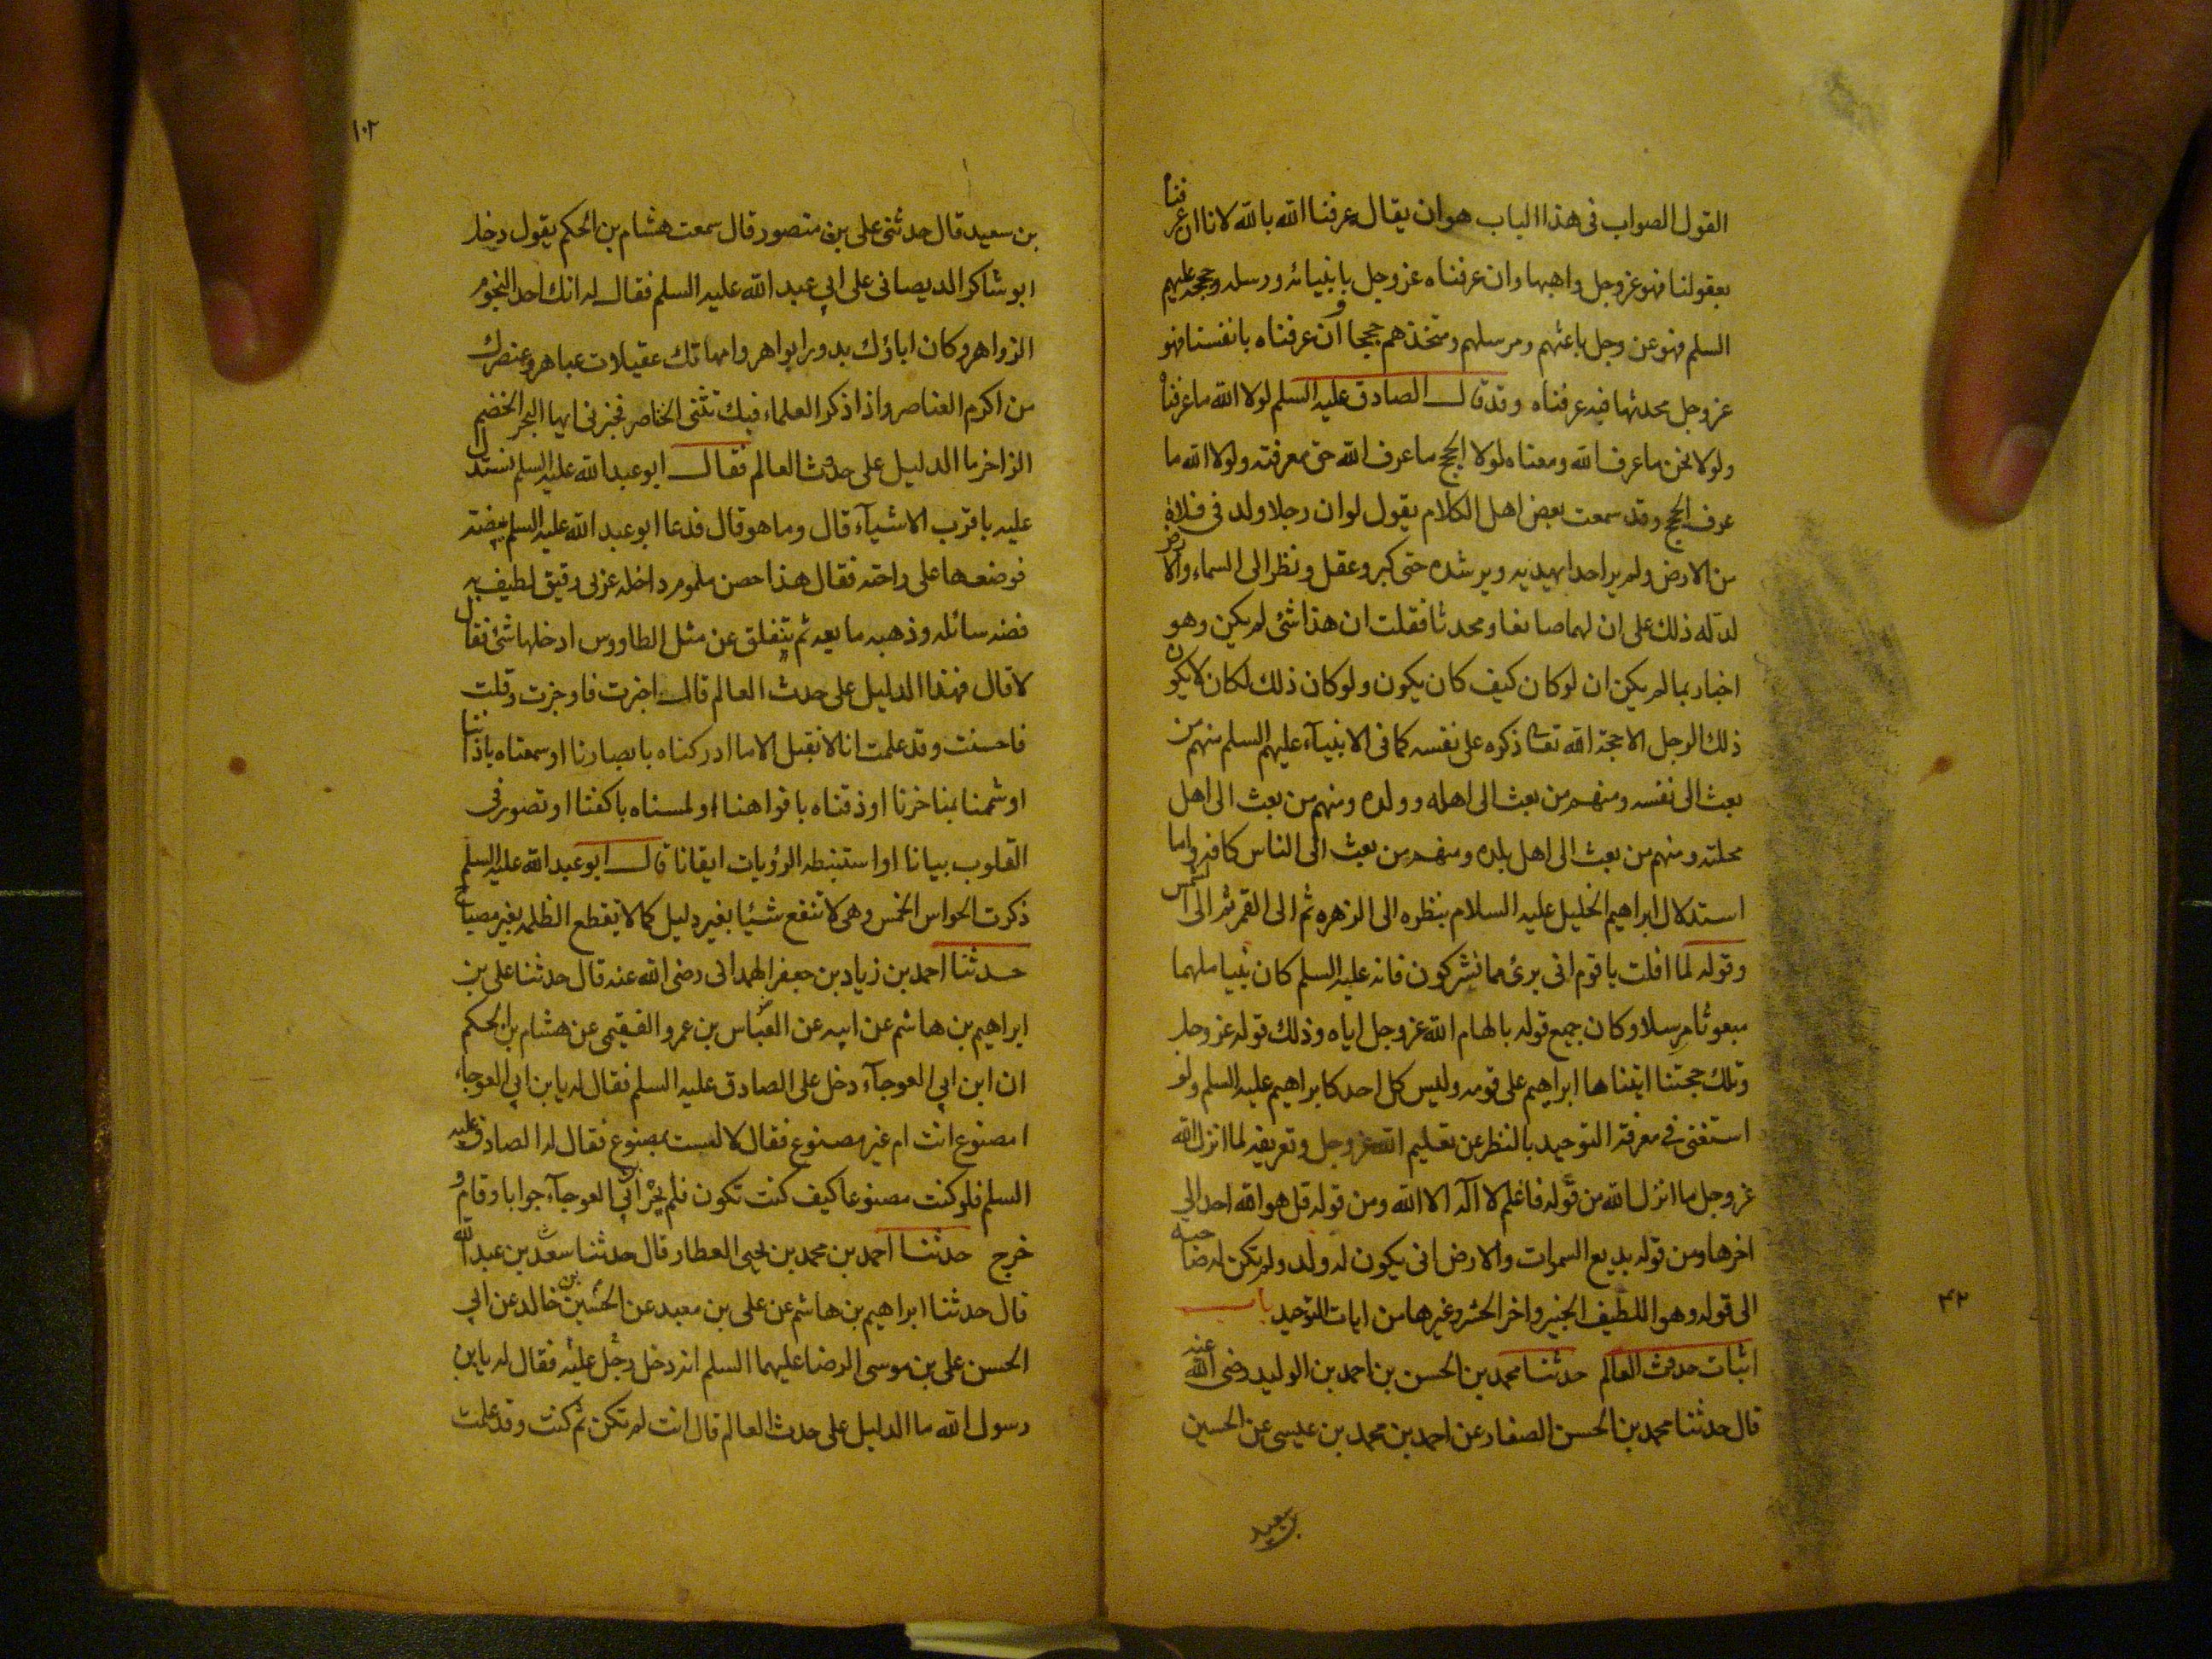 القول الصواب فى هذا الباب هو ان يقال عرفنا الله بالله لانا ان عرفناه
بعقولنا فهو عز وجل واهبها وان عرفناه عز وجل بانبيائه ورسله وحججه عليهم
السلم فهو عز وجل باعثهم ومرسلهم ومتخذهم حججا وان عرفناه بانفسنا فهو
عز وجل محدثها فبه عرفناه وقد قال الصادق عليه السلم لولا الله ما عرفناه
ولولا نحن ما عرف الله ومعناه لولا الحجج ما عرف الله حق معرفته ولولا الله ما
عرف الحجج وقد سمعت بعض اهل الكلام يقول لو ان رجلا ولد فى فلاة
من الارض ولم ير احدا يهديه ويرشده حتى كبر وعقل ونظر الى السماء والارض
لدله ذلك على ان لهما صانعا ومحدثا فقلت ان هذا شئ لم يكن وهو
اخبار بما لم يكن ان لو كان كيف كان يكون ولو كان ذلك لكان لا يكون
ذلك الرجل الا حجة الله تعالى ذكره على نفسه كما فى الانبيآء عليهم السلم منهم من
بعث الى نفسه ومنهم من بعث الى اهله وولده ومنهم من بعث الى اهل
محلته ومنهم من بعث الى اهل بلده ومنهم من بعث الى الناس كافة واما
استدلال ابراهيم الخليل عليه السلام بنظره الى الزهره ثم الى القمر ثم الى الشمس
وقوله لما افلت يا قوم انى برئ مما تشركون فانه عليه السلم كان نبيا ملهما
مبعوثا مرسلا وكان جميع قوله بالهام الله عز وجل اياه وذلك قوله عز وجل
وتلك حجتنا اتيناها ابراهيم على قومه وليس كل احد كابراهيم عليه السلم ولو
استغنى فى معرفة التوحيد بالنظر عن تعليم الله عز وجل وتعريفه لما انزل الله
عز وجل ما انزل الله من قوله فاعلم لا اله الا الله ومن قوله قل هو الله احد الى
اخرها ومن قوله بديع السموات والارض انى يكون له ولد ولم تكن له صاحبه
الى قوله وهو اللطيف الخبير واخر الحشر وغيرها من ايات التوحيد باب
اثبات حدوث العالم حدثنا محمد بن الحسن بن احمد بن الوليد رضى الله عنه
قال حدثنا محمد بن الحسن الصفار عن احمد بن محمد بن عيسى عن الحسين
بن سعيد
۴۲
۱۰۲
بن سعيد قال حدثنى على بن منصور قال سمعت هشام بن الحكم يقول دخل
ابو شاكر الديصانى على ابي عبد الله عليه السلم فقال له انك احد النجوم
الزواهر وكان اباؤك بدورا بواهر وامهاتك عقيلات عباهر وعنصرك
من اكرم العناصر واذا ذكر العلماء فبك تثنى الخناصر فخبرنى ايها البحر الخضم
الزاخر ما الدليل على حدوث العالم فقال ابو عبد الله عليه السلم نستدل
عليه باقرب الاشيآء قال وما هو قال فدعا ابو عبد الله عليه السلم ببيضة
فوضعها على راحته فقال هذا حصن ملموم داخله غرقى رقيق لطيف به
فضه سائله وذهبه مايعه ثم تنفلق عن مثل الطاووس ادخلها شئ فقال
لا قال فهذا الدليل على حدث العالم قال اخبرت فاوجزت وقلت
فاحسنت وقد علمت انا لا نقبل الا ما ادركناه بابصارنا او سمعناه باذاننا
او شممنا بمناخرنا او ذقناه بافواهنا او لمسناه باكفنا او تصور فى
القلوب بيانا او استنبطه الرؤيات ايقانا قال ابو عبد الله عليه السلم
ذكرت الحواس الخمس وهى لا تنفع شيئا بغير دليل كما لا تقطع الظلمه بغير مصباح
حدثنا احمد بن زياد بن جعفر الهمدانى رضى الله عنه قال حدثنا على بن
ابراهيم بن هاشم عن ابيه عن العباس بن عمرو الفقيمى عن هشام بن الحكم
ان ابن ابي العوجآء دخل على الصادق عليه السلم فقال له يا بن ابي العوجاء
امصنوع انت ام غير مصنوع فقال لا لست بمصنوع فقال له الصادق عليه
السلم فلو كنت مصنوعا كيف كنت تكون فلم يحر ابن ابي العوجآء جوابا وقام و
خرج حدثنا احمد بن محمد بن يحيى العطار قال حدثنا سعد بن عبد الله
قال حدثنا ابراهيم بن هاشم عن على بن معبد عن الحسين بن خالد عن ابي
الحسن على بن موسى الرضا عليهما السلم انه دخل رجل عليه فقال له يا بن
رسول الله ما الدليل على حدث العالم قال انت لم تكن ثم كنت وقد علمت